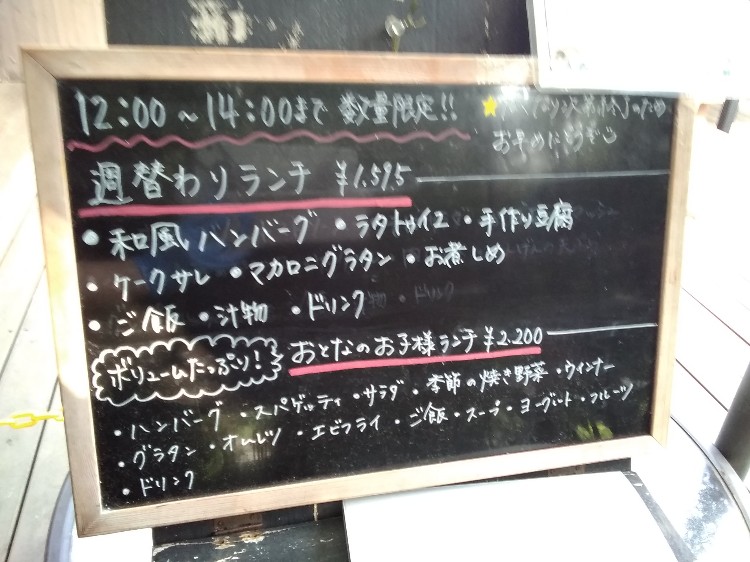 12:00～14:00まで 数量限定!!
★なくなり次第終了のため
お早めにどうぞ
週替わりランチ ¥1,595
・和風ハンバーグ ・ラタトゥイユ ・手作り豆腐
・ケークサレ ・マカロニグラタン ・お煮しめ
・ご飯 ・汁物 ・ドリンク
ボリュームたっぷり!
おとなのお子様ランチ ¥2,200
・ハンバーグ ・スパゲッティ ・サラダ ・季節の焼き野菜 ・ウィンナー
・グラタン ・オムレツ ・エビフライ ・ご飯 ・スープ ・ヨーグルト ・フルーツ
・ドリンク